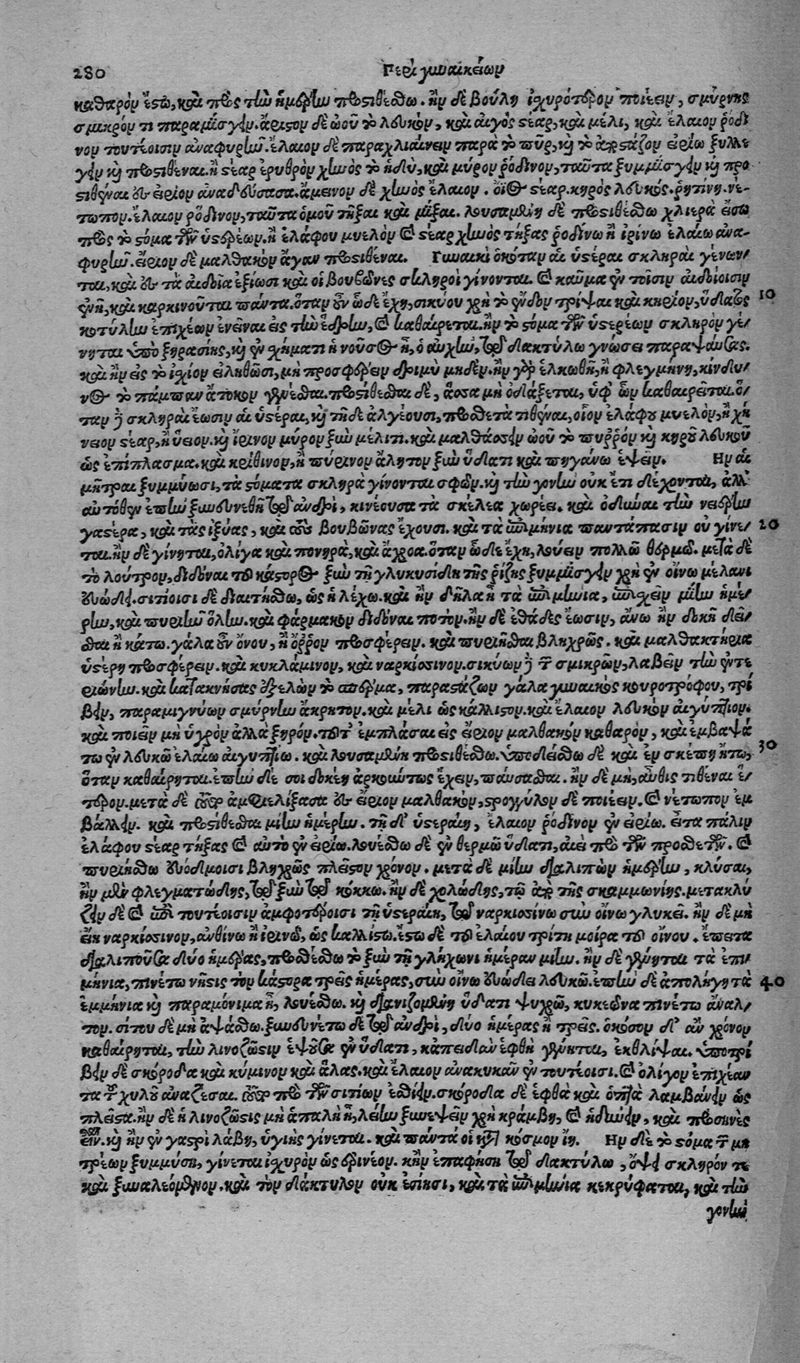 280 Περὶ γυναικείων
καθαρὸν ἔστω, καὶ πρὸς τὴν ἡμέρην προστιθέσθω. ἢν δὲ βούλῃ ἰχυρότερον ποιέειν, σμύρνης
σμικρόν τι παραμίσγειν. ἄριστον δὲ ὠοῦ τὸ λευκὸν, καὶ αἰγὸς στέαρ, καὶ μέλι, καὶ ἔλαιον ῥόδι
νον τουτέοισιν ἀναφυρῇν. ἔλαιον δὲ παραχλιαίνειν παρὰ τὸ πῦρ, καὶ τὸ ἀποστάζον εἰρίῳ ξυλλέ
γειν καὶ προστιθέναι. ἢ στέαρ ἐρυθρὸν χηνὸς τὸ ἡδὺ, καὶ μύρον ῥόδινον, ταῦτα ξυμμίσγειν καὶ προ
στιθέναι ἐν εἰρίον ἀναδεύσασα. ἄμεινον δὲ χηνὸς ἔλαιον. οἰὸς στέαρ. κηρὸς λευκός. ῥητίνη. νε
τωπον. ἔλαιον ῥόδινον, ταῦτα ὁμοῦ τῆξαι καὶ μίξαι. λουσαμένη δὲ προστιθέσθω χλιερὰ ἔσω
πρὸς τὸ στόμα τῶν ὑστερέων. ἢ ἐλάφου μυελὸν καὶ στέαρ χηνὸς τήξας ῥοδίνῳ ἢ ἰρίνῳ ἐλαίῳ ἀνα-
φυρῇν. εἴριον δὲ μαλθακὸν ἄγαν προστιθέναι. Γυναικὶ ὁκόταν αἱ ὑστέραι σκληραὶ γένων
ται, καὶ ἐν τὰ αἰδοῖα ἐξίωσι καὶ οἱ βουβῶνες σκληροὶ γίνονται. καὶ καῦμα ἐν τοῖσιν αἰδοίοισιν
ἐνῇ, καὶ καρκινοῦται πάντα. ὅταν οὖν ὧδε ἔχῃ, σικύου χρὴ τὸ ἔνδον τρίψαι καὶ κηρίον, ὕδατος 10
κοτύλην ἐπιχέων ἐνεῖναι ἐς τὴν ἕδρην, καὶ καθαίρεται. ἢν τὸ στόμα τῶν ὑστερέων σκληρὸν γέ
νηται ὑπὸ ξηρασίης, καὶ ἐν χήματι ἡ νοῦσος ᾖ, ὁ αὐχὴν, τῷ δακτύλῳ γνώσει παραψαύσας.
καὶ ἢν ἐς τὸ ἰσχίον εἰληθῶσι, μὴ προσφέρειν δριμὺ μηδέν. ἢν γὰρ ἑλκωθῇ, ἢ φλεγμήνῃ, κίνδυ
νος τὸ πάμπαν ἄτοκον γενέσθαι. προστίθεσθαι δὲ, ἅσσα μὴ ὀδάξεται, ὑφ᾽ ὧν καθαιρεῖται. ὅ
ταν δὲ σκληραὶ ἔωσιν αἱ ὑστέραι, καὶ τῇδε ἀλγέουσι, πρόσθετα τιθέναι, οἷον ἐλάφου μυελὸν, ἢ χή
νειον στέαρ, ἢ ὕειον. καὶ ἴρινον μύρον ξὺν μέλιτι. καὶ μαλθάσσειν ὠοῦ τὸ πυῤῥὸν καὶ κηροῦ λευκοῦ
ὡς ἐπίπλασμα. καὶ κρίθινον, ἢ πύρινον ἄλητον ξὺν ὕδατι καὶ πηγάνῳ ἕψειν. Ἢν αἱ
μῆτραι ξυμμύωσι, τὰ στόματα σκληρὰ γίνονται σφῶν. καὶ τὴν γονὴν οὐκ ἔτι δέχονται, ἀλλ᾽
αὐτόθεν ἐπὴν ξυνευνηθῇ τῷ ἀνδρὶ, κινέουσα τὰ σκέλεα χωρέει. καὶ ὀδύναι τὴν νείερην
γαστέρα, καὶ τὰς ἰξύας, καὶ τοὺς βουβῶνας ἔχουσι. καὶ τὰ ἐπιμήνια παντάπασιν οὐ γίνε 20
ται. ἢν δὲ γίνηται, ὀλίγα καὶ πονηρὰ, καὶ ἄχροα. ὅταν ὧδε ἔχῃ, λούειν πολλῷ θερμῷ. μετὰ δὲ
τὸ λουτρὸν, διδόναι τοῦ κάστορος ξὺν τῇ γλυκυσίδῃ τῆς ῥίζης ξυμμίσγειν χρὴ ἐν οἴνῳ μέλανι
εὐώδει. σιτίοισι δὲ διαιτήσθω, ὡς ἡ λέχω. καὶ ἢν δῆλα ᾖ τὰ ἐπιμήνια, ἐπισχεῖν μίην ἡμέ
ρην, καὶ πυριῇν ὅλην. καὶ φάρμακον διδόναι ποτόν. ἢν δὲ ἐθάδες ἔωσιν, ἄνω ἢν δοκῇ δεῖ
σθαι ἢ κάτω. γάλα οὖν ὄνου, ἢ ὀῤῥὸν προσφέρειν. καὶ πυριῆσθαι βληχρῶς. καὶ μαλθακτήρια
ὑστέρῃ προσφέρειν. καὶ κυκλάμινον, καὶ ναρκίσσινον. σικύων δὲ τῶν σμικρῶν, λαβεῖν τὴν ἐντε
ριώνην. καὶ κατακνήσας ἐξελὼν τὸ σπέρμα, παραστάζων γάλα γυναικὸς κουροτρόφου, τρί
βειν, παραμιγνύων σμύρνην ἄκρητον. καὶ μέλι ὡς κάλλιστον. καὶ ἔλαιον λευκὸν αἰγύπτιον.
καὶ ποιέειν μὴ ὑγρὸν ἀλλὰ ξηρόν. τοῦτ᾽ ἐμπλάσαι ἐς εἴριον μαλθακὸν καθαρὸν, καὶ ἐμβαψά
τω ἐν λευκῷ ἐλαίῳ αἰγυπτίῳ. καὶ λουσαμένη προστιθέσθω. ὑποδείσθω δὲ καὶ ἐν σκέπῃ ἤτω, 30
ὅταν καθαίρηται. ἐπὴν δέ σοι δοκέῃ ἀρκούντως ἔχειν, παύσασθαι. ἢν δὲ μὴ, αὖθις τιθέναι ἕ
τερον. μετὰ δὲ τοῦτο ἀμφελίξασα ἐν εἴριον μαλθακὸν, στρογγύλον δὲ ποιέειν. καὶ νέτωπον ἐμ
βάλλειν. καὶ προστίθεσθαι μίην ἡμέρην. τῇ δ᾽ ὑστεραίῃ, ἔλαιον ῥόδινον ἐν εἰρίῳ. εἶτα πάλιν
ἐλάφου στέαρ τήξας καὶ αὐτὸ ἐν εἰρίῳ. λουέσθω δὲ ἐν θερμῷ ὕδατι, ἀεὶ πρὸ τῶν προσθέτων. καὶ
πυριήσθω εὐόδμοισι βληχρῶς πλεῖστον χρόνον. μετὰ δὲ μίην διαλιπὼν ἡμέρην, κλύσαι,
ἢν μὲν φλεγματώδης, τῷ ξὺν τῷ κόκκῳ. ἢν δὲ χολώδης, τῷ ἀπὸ τῆς σκαμμωνίης. μετακλύ
ζειν δὲ καὶ ἐπὶ τουτέοισιν ἀμφοτέροισι τῇ ὑστεραίῃ, τῷ ναρκισσίνῳ σὺν οἴνῳ γλυκεῖ. ἢν δὲ μὴ
ἔῃ ναρκίσσινον, ἀνθίνῳ ἢ ἰρίνῳ, ὡς καλλίστῳ. ἔστω δὲ τοῦ ἐλαίου τρίτη μοῖρα τοῦ οἴνου. ἔπειτα
διαλιποῦσα δύο ἡμέρας, προσθέσθω τὸ ξὺν τῇ γλήχωνι ἡμέραν μίην. ἢν δὲ γένηται τὰ ἐπι
μήνια, πινέτω νῆστις τὸν κάστορα τρεῖς ἡμέρας, σὺν οἴνῳ εὐώδει λευκῷ. ἐπὴν δὲ ἀπολήγῃ τὰ 40
ἐμμήνια καὶ παραμόνιμα ᾖ, λουέσθω. καὶ διανιζομένη ὕδατι ψυχρῷ, κυκεῶνα πινέτω ἄναλ
τον. σίτου δὲ μὴ ἁψάσθω. ξυνευνέτω δὲ τῷ ἀνδρὶ, δύο ἡμέρας ἢ τρεῖς. ὁκόσον δ᾽ ἂν χρόνον
καθαίρηται, τὴν λινόζωστιν ἑψοῦσα ἐν ὕδατι, κἀπειδὰν ἑφθὴ γένηται, ἐκθλίψαι. ὑποτρί
βειν δὲ σκόροδα καὶ κύμινον καὶ ἅλας. καὶ ἔλαιον ἀνακυκᾷν ἐν τουτέοισι. καὶ ὀλίγον ἐπιχέαν
τα τοῦ χυλοῦ ἀναζέσαι. τοῦτο πρὸ τῶν σιτίων ἐσθίειν. σκόροδα δὲ ἑφθὰ καὶ ὀπτὰ λαμβάνειν ὡς
πλεῖστα. ἢν δὲ ἡ λινόζωστις μὴ ἁπαλὴ ᾖ, λείην ξυνέψειν χρὴ κράμβῃ, καὶ ἡδύνειν, καὶ προσηνὲς
εἶν. καὶ ἢν ἐν γαστρὶ λάβῃ, ὑγιὴς γίνεται. καὶ πάντα οἱ κατὰ κόσμον ἴῃ. Ἢν δὲ τὸ στόμα τῶν μη
τρέων ξυμμύσῃ, γίνεται ἰχυρὸν ὡς ἐρινεόν. κἢν ἐπαφήσῃ τῷ δακτύλῳ, ὄψει σκληρόν τε
καὶ ξυναλεόμενον. καὶ τὸν δάκτυλον οὐκ ἐσίησι, καὶ τὰ ἐπιμήνια κεκρύφαται, καὶ τὴν
γονὴν